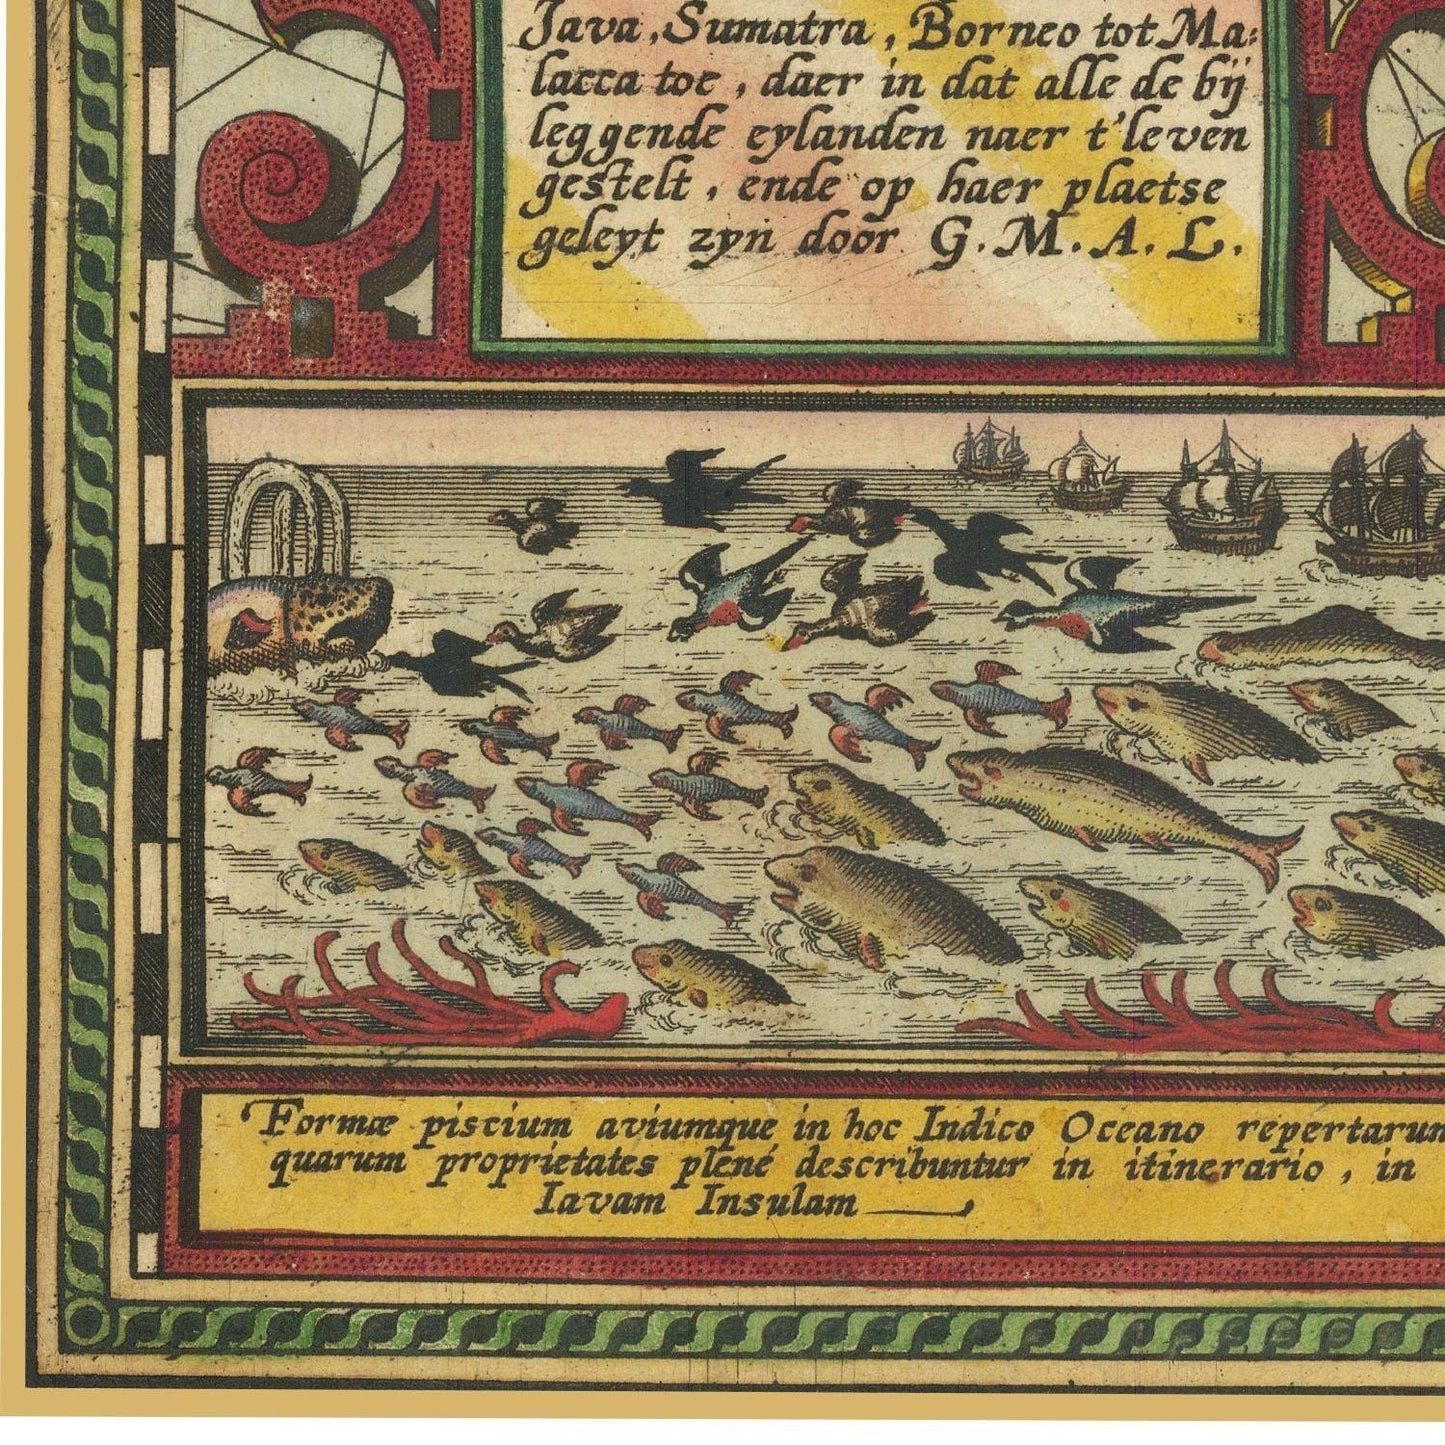 Java, Sumatra, Borneo tot Ma:
lacca toe, daer in dat alle de bij
leggende eylanden naer t'leven
gestelt, ende op haer plaetse
geleyt zyn door G.M.A.L.
Formæ piscium aviumque in hoc Indico Oceano repertarum
quarum proprietates plené describuntur in itinerario, in
Iavam Insulam